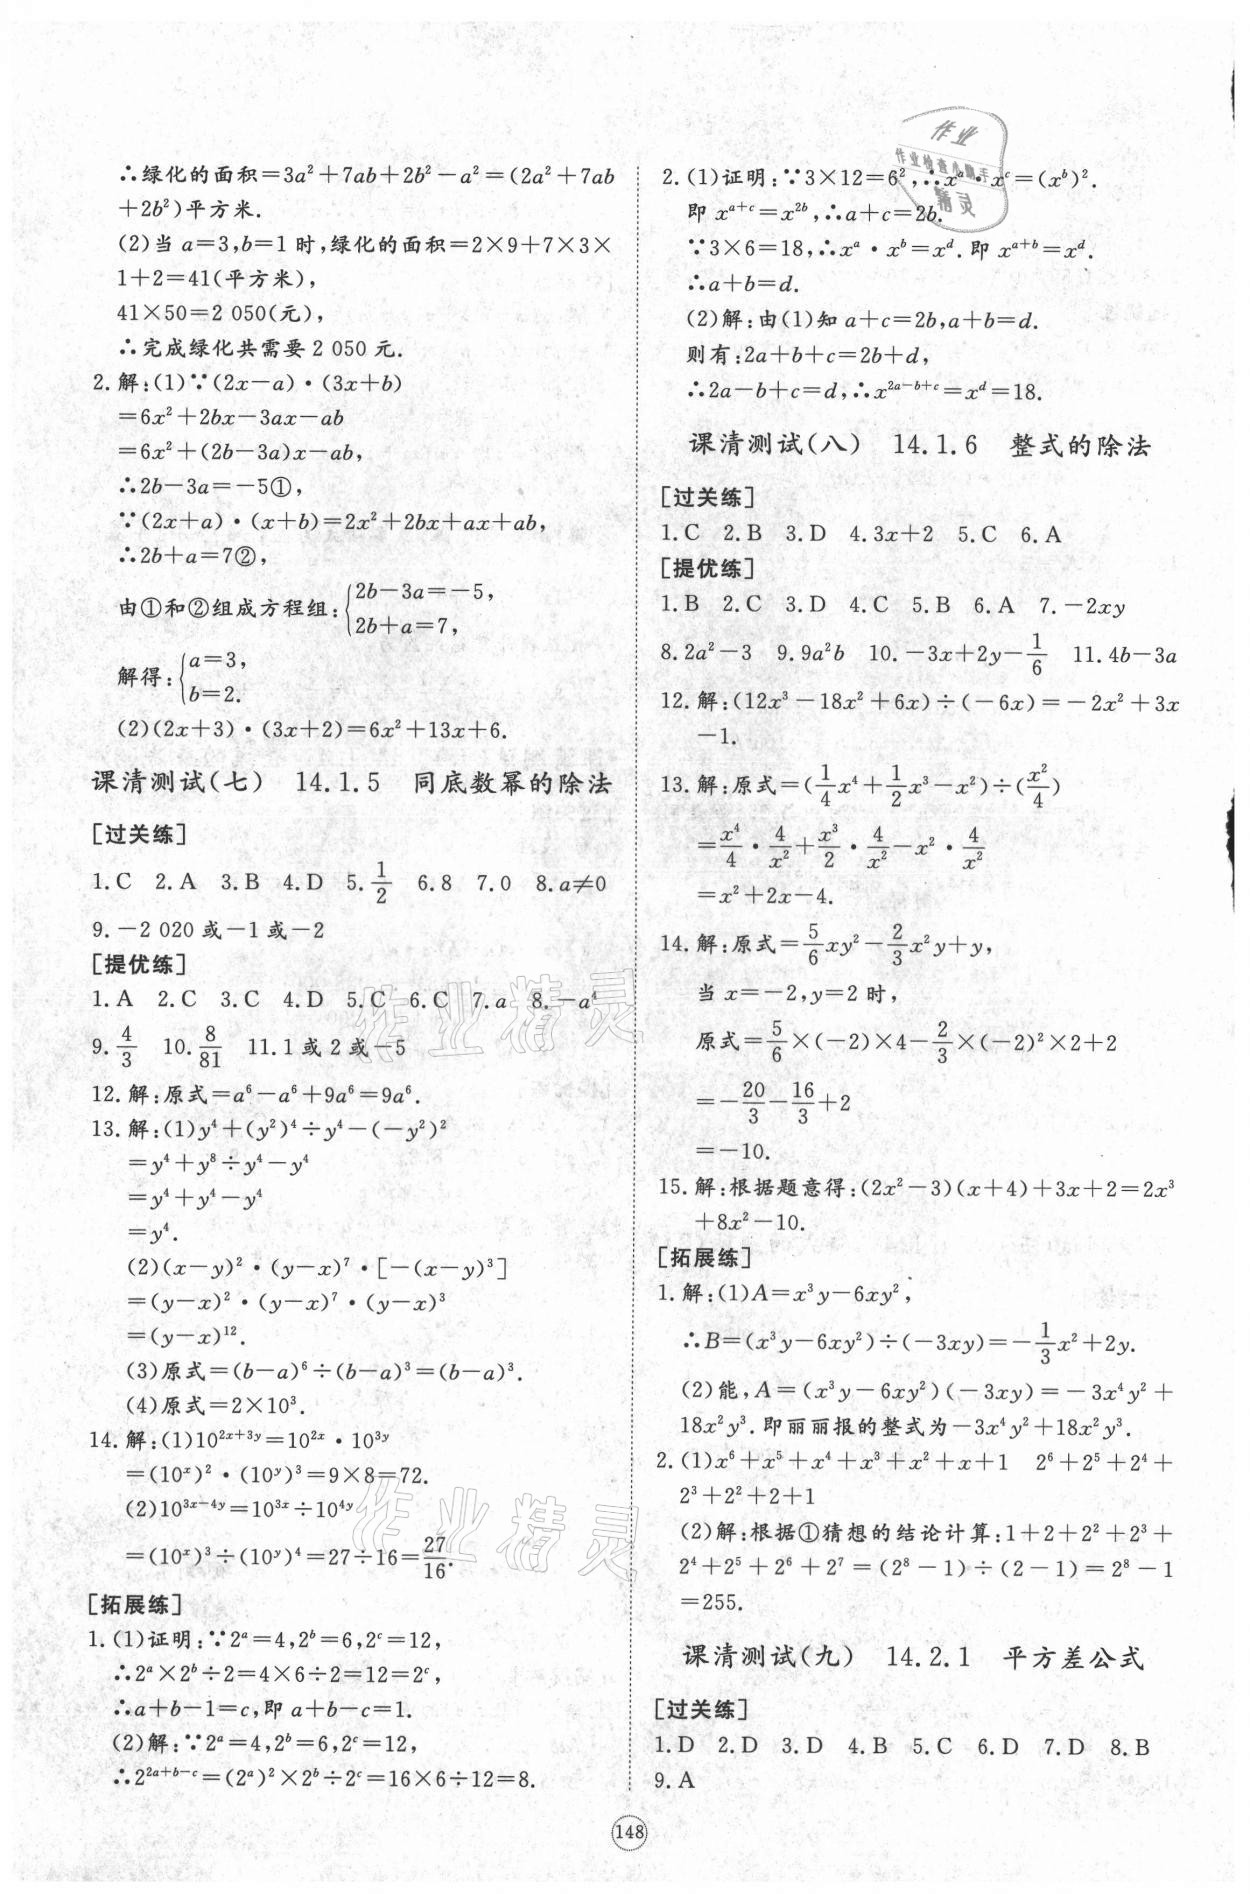 ∴绿化的面积=3a²+7ab+2b²-a²=(2a²+7ab
+2b²)平方米.
(2)当 a=3,b=1 时,绿化的面积=2×9+7×3×
1+2=41(平方米),
41×50=2 050(元),
∴完成绿化共需要 2 050 元.
2.解:(1)∵(2x-a)·(3x+b)
=6x²+2bx-3ax-ab
=6x²+(2b-3a)x-ab,
∴2b-3a=-5①,
∵(2x+a)·(x+b)=2x²+2bx+ax+ab,
∴2b+a=7②,
由①和②组成方程组:{2b-3a=-5,
2b+a=7,
解得:{a=3,
b=2.
(2)(2x+3)·(3x+2)=6x²+13x+6.
课清测试(七) 14.1.5 同底数幂的除法
[过关练]
1.C 2.A 3.B 4.D 5.1/2 6.8 7.0 8.a≠0
9.-2 020 或-1 或-2
[提优练]
1.A 2.C 3.C 4.D 5.C 6.C 7.a 8.-a⁴
9.4/3 10.8/81 11.1 或 2 或-5
12.解:原式=a⁶-a⁶+9a⁶=9a⁶.
13.解:(1)y⁴+(y²)⁴÷y⁴-(-y²)²
=y⁴+y⁸÷y⁴-y⁴
=y⁴+y⁴-y⁴
=y⁴.
(2)(x-y)²·(y-x)⁷·[-(x-y)³]
=(y-x)²·(y-x)⁷·(y-x)³
=(y-x)¹².
(3)原式=(b-a)⁶÷(b-a)³=(b-a)³.
(4)原式=2×10³.
14.解:(1)10²ˣ⁺³ʸ=10²ˣ·10³ʸ
=(10ˣ)²·(10ʸ)³=9×8=72.
(2)10³ˣ⁻⁴ʸ=10³ˣ÷10⁴ʸ
=(10ˣ)³÷(10ʸ)⁴=27÷16=27/16.
[拓展练]
1.(1)证明:∵2ᵃ=4,2ᵇ=6,2ᶜ=12,
∴2ᵃ×2ᵇ÷2=4×6÷2=12=2ᶜ,
∴a+b-1=c,即 a+b-c=1.
(2)解:∵2ᵃ=4,2ᵇ=6,2ᶜ=12,
∴2²ᵃ⁺ᵇ⁻ᶜ=(2ᵃ)²×2ᵇ÷2ᶜ=16×6÷12=8.
2.(1)证明:∵3×12=6²,∴xᵃ·xᶜ=(xᵇ)².
即 xᵃ⁺ᶜ=x²ᵇ,∴a+c=2b.
∵3×6=18,∴xᵃ·xᵇ=xᵈ.即 xᵃ⁺ᵇ=xᵈ.
∴a+b=d.
(2)解:由(1)知 a+c=2b,a+b=d.
则有:2a+b+c=2b+d,
∴2a-b+c=d,∴x²ᵃ⁻ᵇ⁺ᶜ=xᵈ=18.
课清测试(八) 14.1.6 整式的除法
[过关练]
1.C 2.B 3.D 4.3x+2 5.C 6.A
[提优练]
1.B 2.C 3.D 4.C 5.B 6.A 7.-2xy
8.2a²-3 9.9a²b 10.-3x+2y-1/6 11.4b-3a
12.解:(12x³-18x²+6x)÷(-6x)=-2x²+3x
-1.
13.解:原式=(1/4x⁴+1/2x³-x²)÷(x²/4)
=x⁴/4·4/x²+x³/2·4/x²-x²·4/x²
=x²+2x-4.
14.解:原式=5/6xy²-2/3x²y+y,
当 x=-2,y=2 时,
原式=5/6×(-2)×4-2/3×(-2)²×2+2
=-20/3-16/3+2
=-10.
15.解:根据题意得:(2x²-3)(x+4)+3x+2=2x³
+8x²-10.
[拓展练]
1.解:(1)A=x³y-6xy²,
∴B=(x³y-6xy²)÷(-3xy)=-1/3x²+2y.
(2)能,A=(x³y-6xy²)(-3xy)=-3x⁴y²+
18x²y³.即丽丽报的整式为-3x⁴y²+18x²y³.
2.(1)x⁶+x⁵+x⁴+x³+x²+x+1 2⁶+2⁵+2⁴+
2³+2²+2+1
(2)解:根据①猜想的结论计算:1+2+2²+2³+
2⁴+2⁵+2⁶+2⁷=(2⁸-1)÷(2-1)=2⁸-1
=255.
课清测试(九) 14.2.1 平方差公式
[过关练]
1.D 2.D 3.D 4.B 5.C 6.D 7.D 8.B
9.A
148
作业
作业检查小助手
精灵
作业精灵
作业精灵